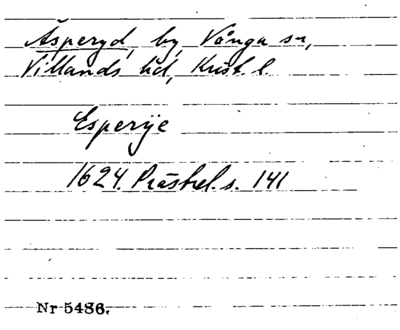 Äsperyd, by, Vånga sn,
Villands hd, Krist. l.
Esperije
1624. Prästrel. s. 141
Nr 5486.